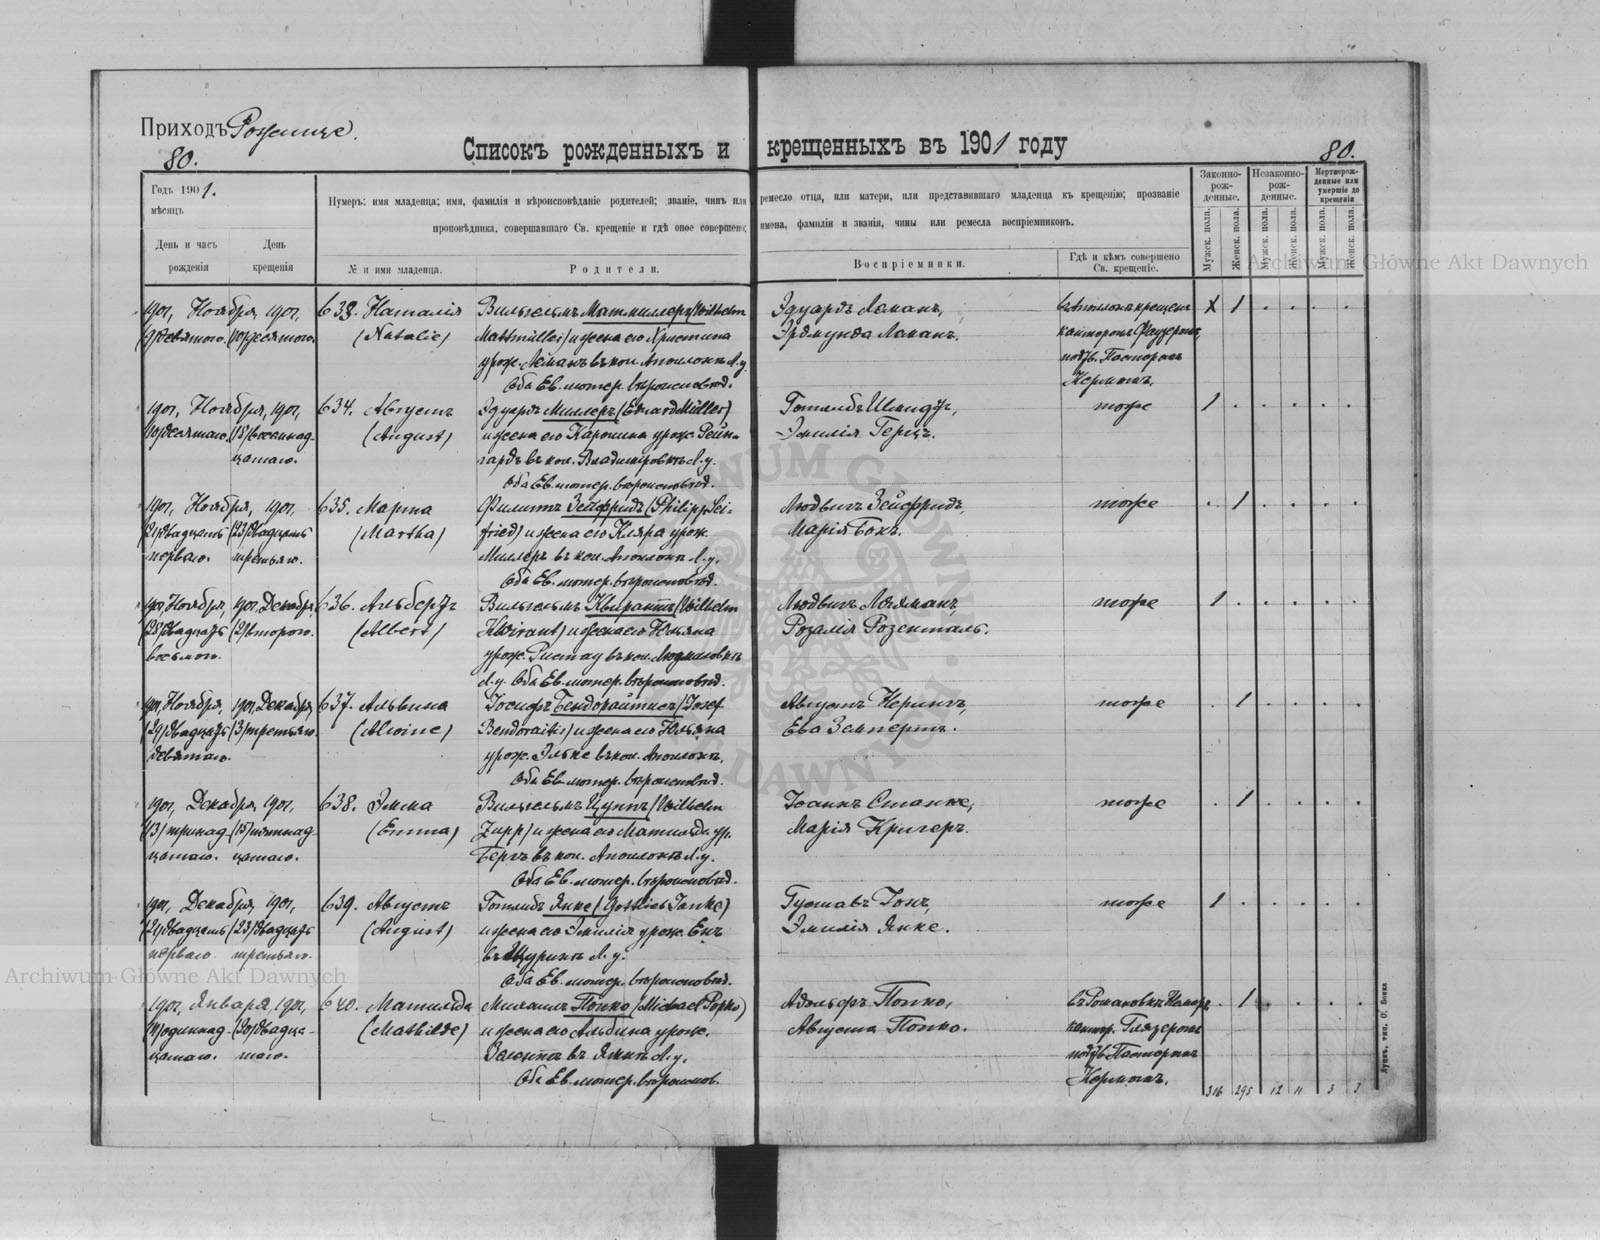 Приходъ Рожище.
80.
Списокъ рожденныхъ и крещенныхъ въ 1901 году
80.
Годъ 1901.
мѣсяцъ
День и часъ рожденія
День крещенія
Нумеръ; имя младенца; имя, фамилія и вѣроисповѣданіе родителей; званіе, чинъ или ремесло отца, или матери, или представившаго младенца къ крещенію; прозваніе
проповѣдника, совершавшаго Св. крещеніе и гдѣ оное совершено; имена, фамиліи и званія, чины или ремесла воспріемниковъ.
№ и имя младенца.
Родители.
Воспріемники.
Гдѣ и кѣмъ совершено
Св. крещеніе.
Законно-рож-денные.
Незаконно-рож-денные.
Мертворож-денные или умершіе до крещенія
Мужск. пола.
Женск. пола.
Мужск. пола.
Женск. пола.
Мужск. пола.
Женск. пола.
1901, Ноября, 1901, 633. Наталія Вильгельмъ Матмиллеръ (Wilhelm Эдуардъ Леманъ,
(9) девятого. (10) десятого. (Natalie) Mattmüller) и жена его Христина Эрдмунда Леманъ. канторомъ
урож. Леманъ въ кол. Аполонкѣ Л. у. подтв. Пасторомъ
Оба Ев. лютер. вѣроисповѣд. Керммъ.
1901, Ноября, 1901, 634. Августъ Эдуардъ Миллеръ (Eduard Müller) Готлибъ Шмидтъ, тоже 1
(10) десятаго. (18) восемнад- (August) и жена его Каролина урож. Рейн- Эмилія Герцъ.
цатаго. гардъ въ кол. Владимировкѣ Л. у.
Оба Ев. лютер. вѣроисповѣд.
1901, Ноября, 1901, 635. Марта Филиппъ Зейфридъ (Philipp Sei- Людвигъ Зейфридъ, тоже 1
(21) двадцать (23) двадцать (Martha) fried) и жена его Клара урож. Марія Бокъ.
перваго. третьяго. Миллеръ въ кол. Аполонкѣ Л. у.
Оба Ев. лютер. вѣроисповѣд.
1901, Ноября, 1901, Декабря, 636. Альбертъ Вильгельмъ Квирантъ (Wilhelm Людвигъ тоже 1
(28) двадцать (2) второго. (Albert) Kwirant) и жена его Юльяна Розалія Розенталь.
восьмого. урож. Ристау въ кол. Людмиловкѣ
Л. у. Оба Ев. лютер. вѣроисповѣд.
1901, Ноября, 1901, Декабря, 637. Альвина Іосифъ Бендорайтисъ (Josef Августъ Нерингъ, тоже 1
(29) двадцать (3) третьяго. (Alwine) Bendoraitis) и жена его Юльяна Ева Земпертъ.
девятаго. урож. Эльке въ кол. Аполонкѣ,
Оба Ев. лютер. вѣроисповѣд.
1901, Декабря, 1901, 638. Эмма Вильгельмъ Цуппъ (Wilhelm Іоаннъ Станке, тоже 1
(13) тринад- (15) пятнад- (Emma) Zupp) и жена его Матильда ур. Марія Кригеръ.
цатаго. цатаго. Бергъ въ кол. Аполонкѣ Л. у.
Оба Ев. лютер. вѣроисповѣд.
1901, Декабря, 1901, 639. Августъ Готлибъ Янке (Gottlieb Janke) Густавъ Іонъ, тоже 1
(21) двадцать (23) двадцать (August) и жена его Эмилія урож. Енъ Эмилія Янке.
перваго. третьяго. въ Щуринѣ Л. у.
Оба Ев. лютер. вѣроисповѣд.
1901, Января, 1901, 640. Матильда Михаилъ Попко (Michael Popko) Адольфъ Попко, въ Романовкѣ 1
(11) одиннад- (20) двадца- (Mathilde) и жена его Альбина урож. Августа Попко. кантор. Глязеромъ
цатаго. таго. въ Л. у. подтв. Пасторомъ
Оба Ев. лютер. вѣроисповѣд.
316 295 12 11 3 3
Луцкъ, тип. О. Бонка
Archiwum Główne Akt Dawnych
Archiwum Główne Akt Dawnych